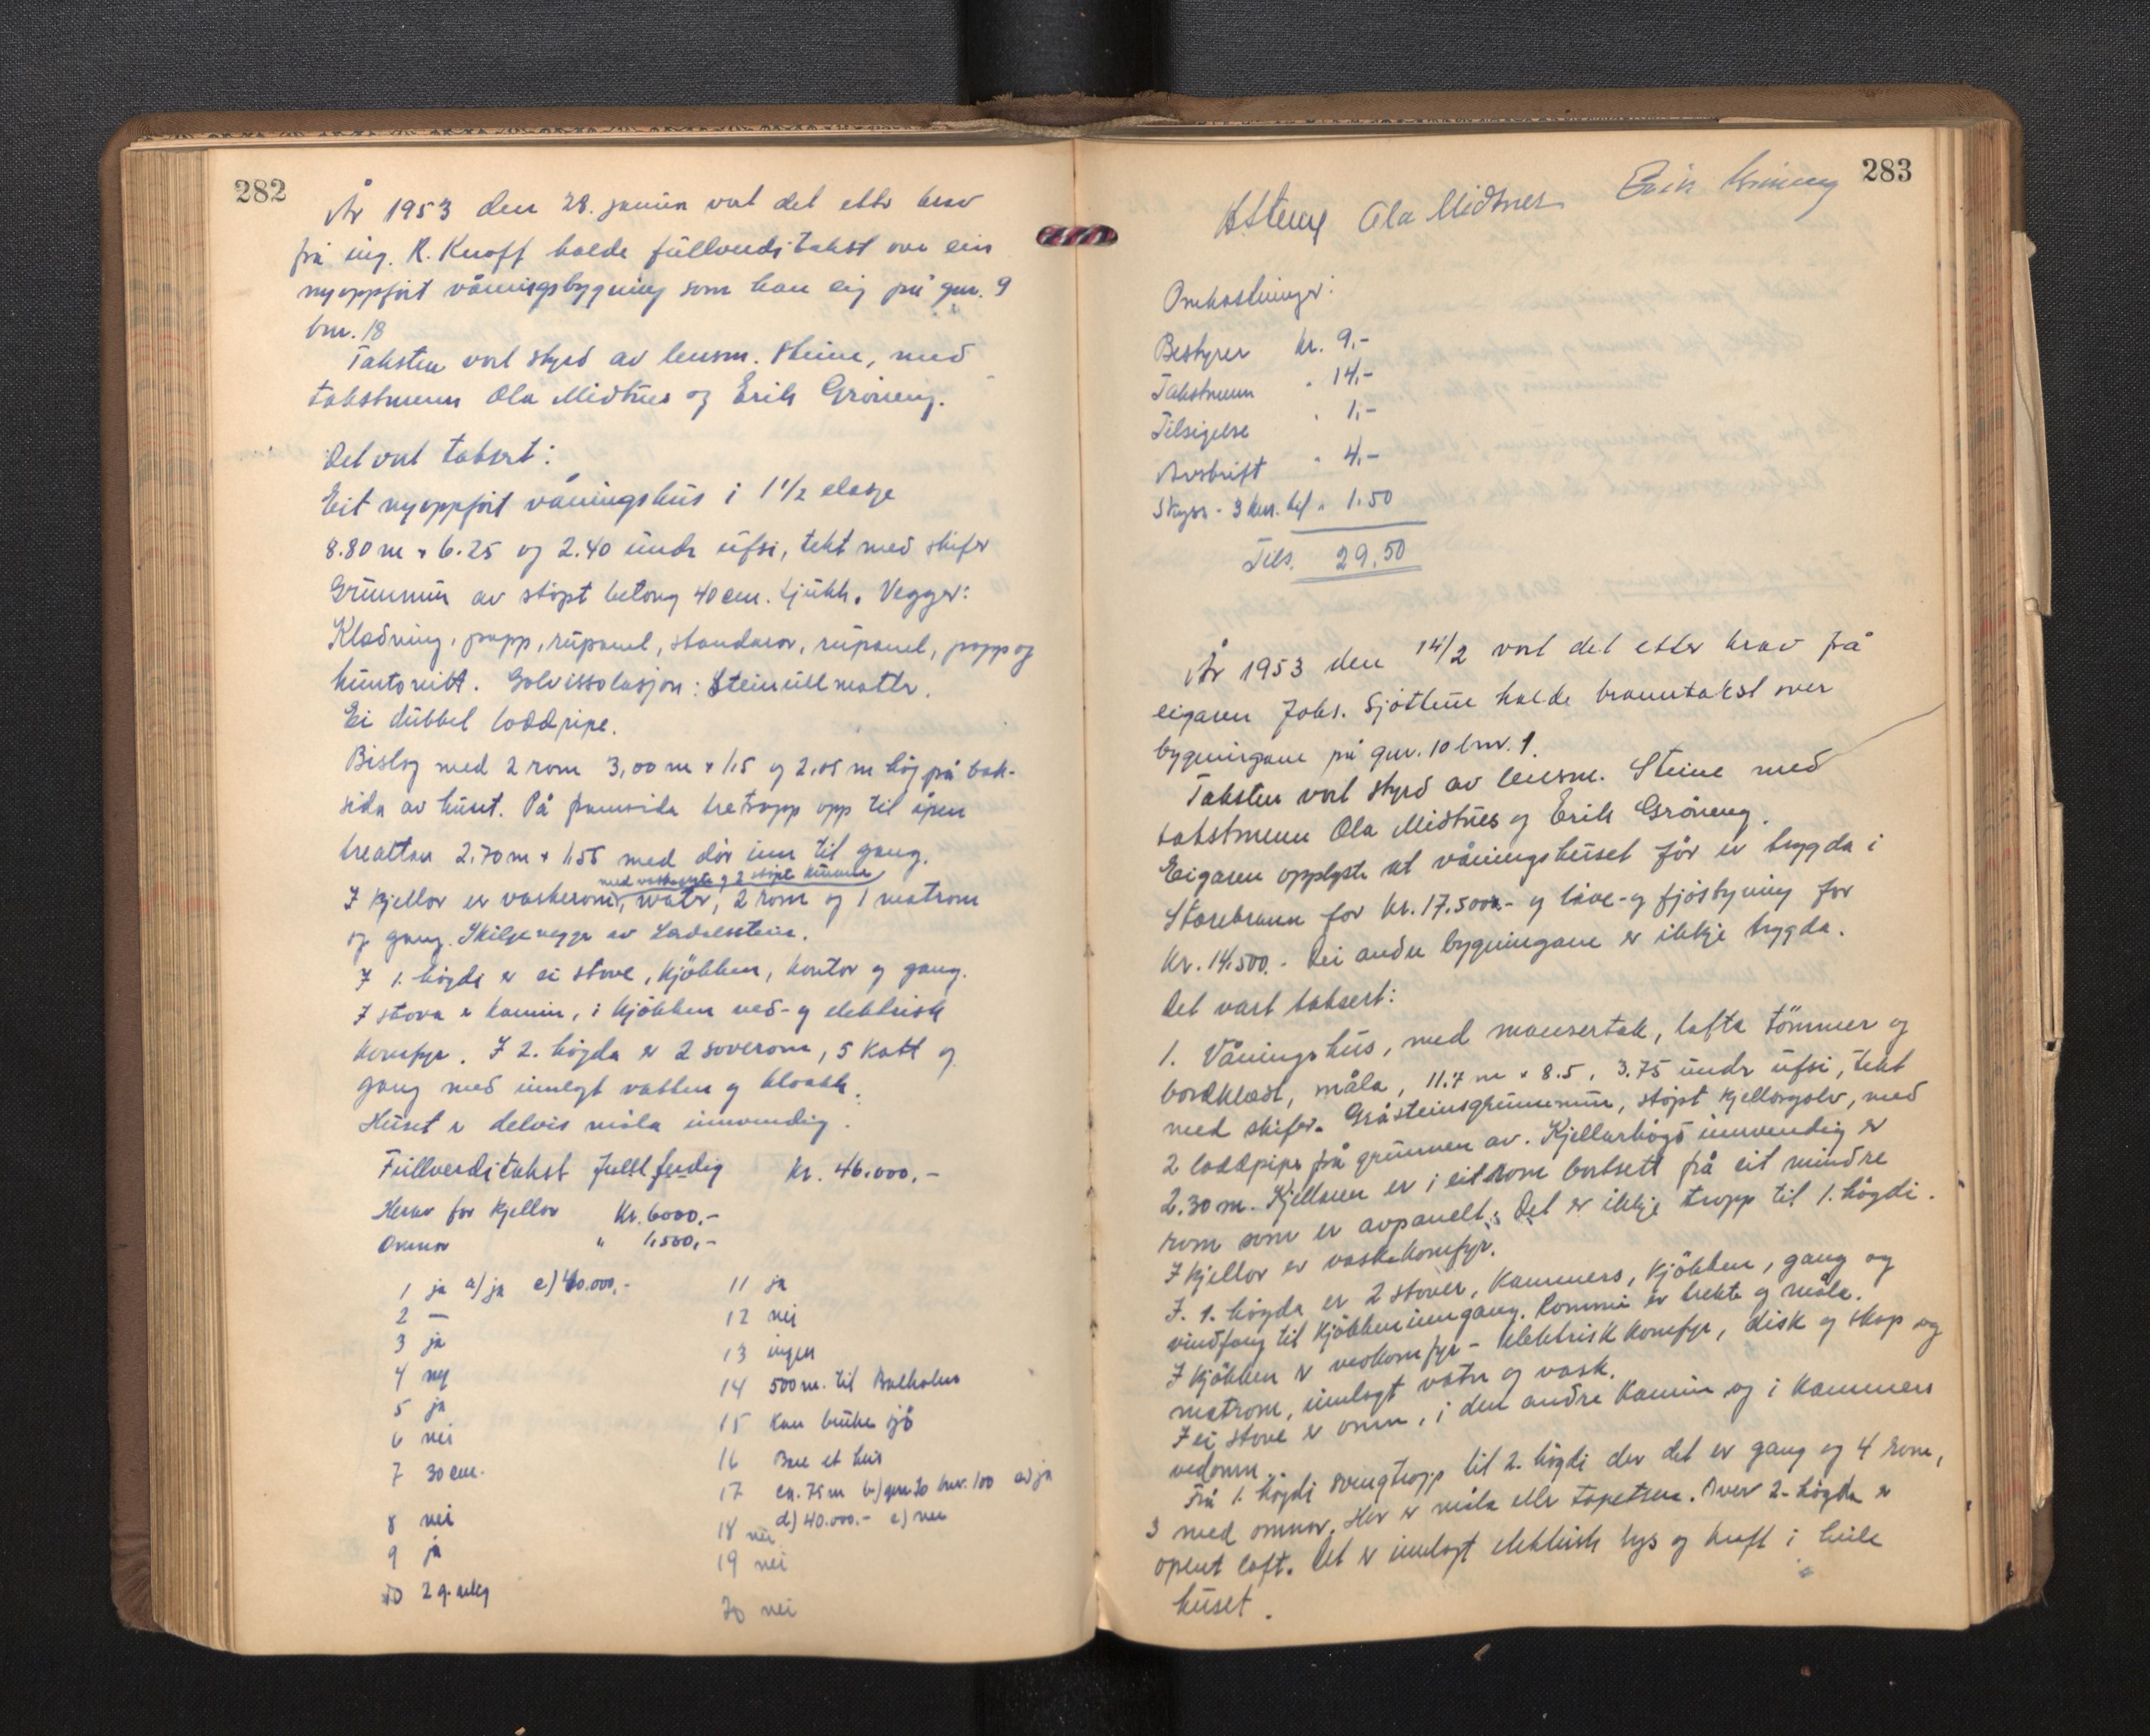 282
År 1953 den 28. januar vart det etter krav
frå ing. R. Knoff halde fullverditakst over ein
nyoppført våningsbygning som han eig på gnr. 9
bnr. 18
Taksten vart styrd av lensm. Steine, med
takstmenn Ola Midtnes og Erik Grøneng.
Det vart taksert:
Eit nyoppført våningshus i 1 1/2 etasje
8.80 m x 6.25 og 2.40 under ufsi, tekt med skifer
Grunnmur av støpt betong 40 cm. tjukk. Vegger:
Kledning, papp, rupanel, standarar, rupanel, papp og
huntonitt. Golvissolasjon: Steinullmatter.
Ei dubbel loddpipe.
Bislag med 2 rom 3,00 m x 1,5 og 2,05 m høg på bak-
sida av huset. På framsida tretrapp opp til åpen
trealtan 2.70 m x 1,55 med dør inn til gang.
med vaskegryte og 2 støpte kummer
I kjellar er vaskerom, vatn, 2 rom og 1 matrom
og gang. Skiljevegger av Lerdalsstein.
I 1. høgdi er ei stove, kjøkken, kontor og gang.
I stova er kamin, i kjøkken ved- og elektrisk
komfyr. I 2. høgda er 2 soverom, 5 kott og
gang med innlagt vatten og kloakk.
Huset er delvis måla innvendig.
Fullverditakst fullt ferdig kr. 46.000,-
Herav for kjellar kr. 6000,-
Omnar " 1.500,-
1 ja a) ja e) 40.000,-
2 —
3 ja
4 ny
5 ja
6 nei
7 30 cm.
8 nei
9 ja
10 2 g. årleg
11 ja
12 nei
13 ingen
14 500 m. til Balholm
15 Kan bruke sjø
16 Bare et hus
17 ca. 75 m b) gnr. 20 bnr. 100 c) ja
d) 40.000.- e) nei
18 nei
19 nei
20 nei
283
HSteine Ola Midtnes Erik Grøneng
Omkostninger:
Bestyrer kr. 9,-
Takstmenn " 14,-
Tilsigelse " 1,-
Avskrift " 4,-
Skyss - 3 km. bil " 1.50
Tils. 29,50
År 1953 den 14/2 vart det etter krav frå
eigaren Johs. Sjøtun halde branntakst over
bygningane på gnr. 10 bnr. 1.
Taksten vart styrd av lensm. Steine med
takstmenn Ola Midtnes og Erik Grøneng.
Eigaren opplyste at våningshuset før er trygda i
Storebrann for kr. 17.500.- og løve- og fjøsbygning for
kr. 14.500.- Dei andre bygningane er ikkje trygda.
Det vart taksert:
1. Våningshus, med mansertak, lafta tømmer og
bordkledt, måla, 11.7 m x 8.5, 3.75 under ufsi, tekt
med skifer. Gråsteinsgrunnmur, støpt kjellargolv, med
2 loddpiper frå grunnen av. Kjellarhøgd innvendig er
2.30 m. Kjellaren er i eit rom bortsett frå eit mindre
rom som er avpanelt. Det er ikkje trapp til 1. høgdi.
I kjellar er vaskekomfyr.
I. 1. høgda er 2 stover, kammers, kjøkken, gang og
vindfang til kjøkkeninngang. Rommi er trekte og måla.
I kjøkken er vedkomfyr - elektrisk komfyr, disk og skap og
matrom, innlagt vatn og vask.
I ei stove er omn, i den andre kamin og i kammers
vedomn.
Frå 1. høgdi svingtrapp til 2. høgdi der det er gang og 4 rom,
3 med omnar. Her er måla eller tapetsera. Over 2. høgda er
opent loft. Det er innlagt elektrisk lys og kraft i heile
huset.